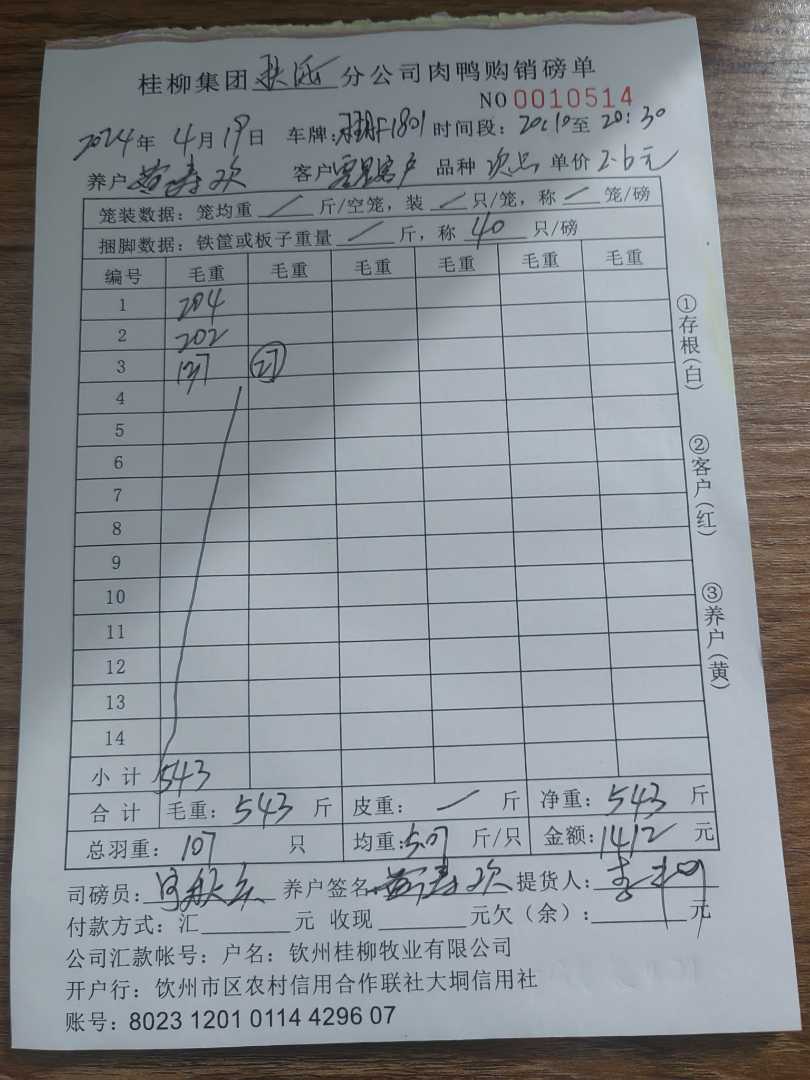 桂柳集团 分公司肉鸭购销磅单
NO 0010514
2024年 4月19日 车牌: F1801 时间段: 20:10至 20:30
养户 黄寿欢 客户 零星客户 品种 次品 单价 2.6元
笼装数据: 笼均重 / 斤/空笼, 装 / 只/笼, 称 / 笼/磅
捆脚数据: 铁筐或板子重量 / 斤, 称 40 只/磅
编号 毛重 毛重 毛重 毛重 毛重 毛重
1 204
2 202
3 137 27
4
5
6
7
8
9
10
11
12
13
14
小计 543
合计 毛重: 543 斤 皮重: / 斤 净重: 543 斤
总羽重: 107 只 均重: 5.07 斤/只 金额: 1412 元
司磅员: 养户签名 黄寿欢 提货人: 李
付款方式: 汇 元 收现 元欠(余): 元
公司汇款帐号: 户名: 钦州桂柳牧业有限公司
开户行: 钦州市区农村信用合作联社大垌信用社
账号: 8023 1201 0114 4296 07
①存根(白)
②客户(红)
③养户(黄)